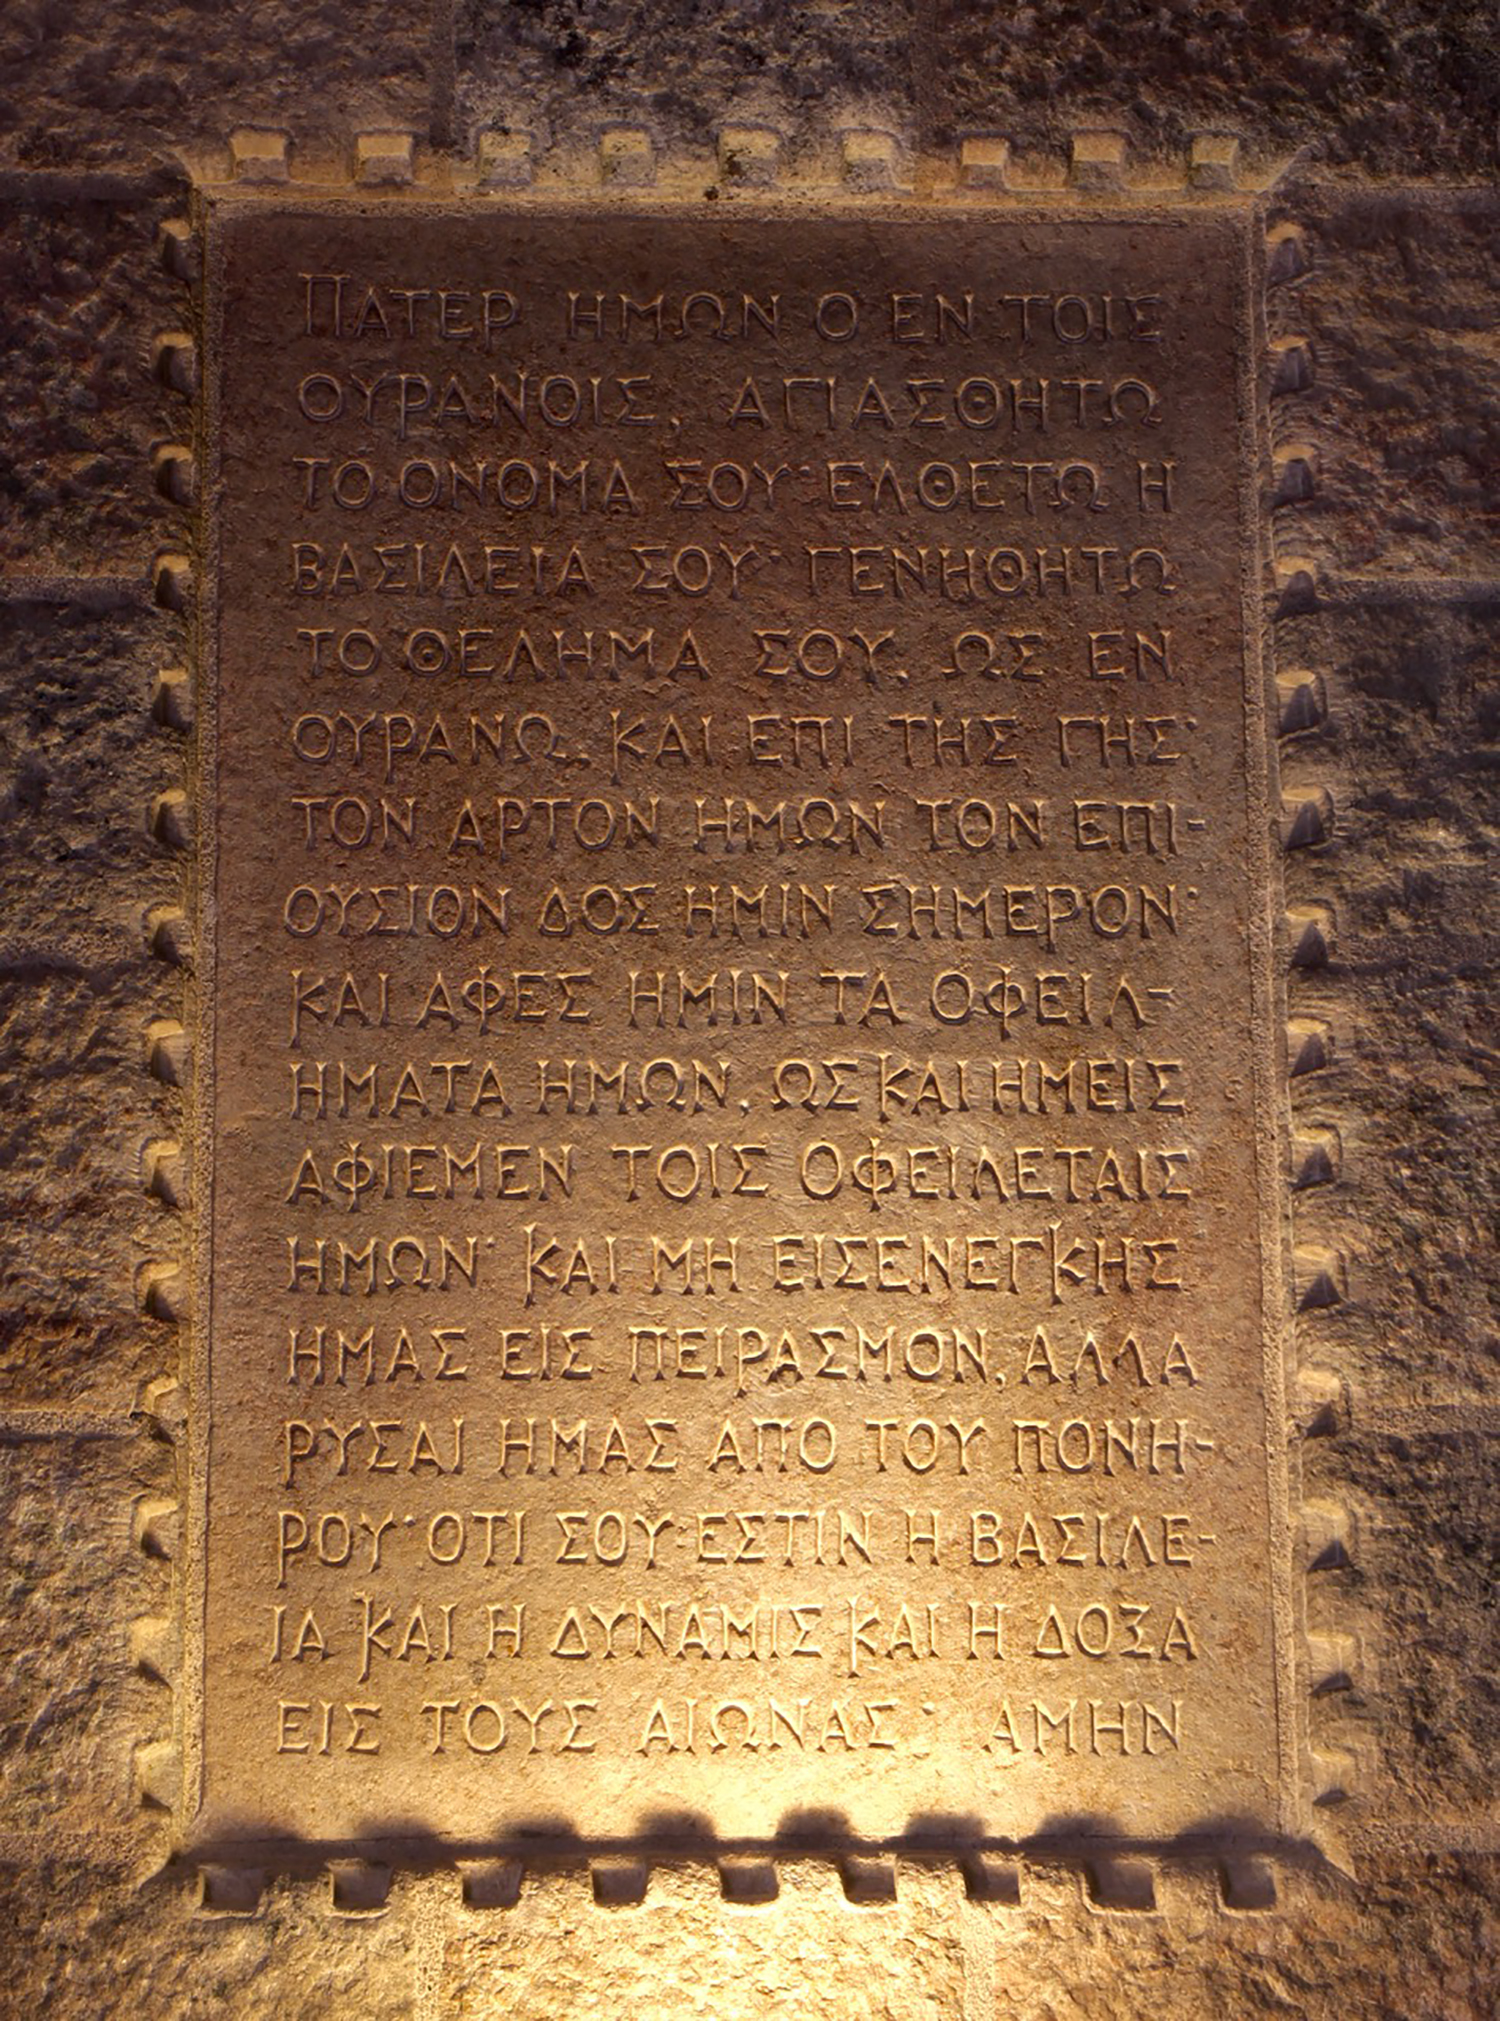 ΠΑΤΕΡ ΗΜΩΝ Ο ΕΝ ΤΟΙΣ
ΟΥΡΑΝΟΙΣ, ΑΓΙΑΣΘΗΤΩ
ΤΟ ΟΝΟΜΑ ΣΟΥ· ΕΛΘΕΤΩ Η
ΒΑΣΙΛΕΙΑ ΣΟΥ· ΓΕΝΗΘΗΤΩ
ΤΟ ΘΕΛΗΜΑ ΣΟΥ, ΩΣ ΕΝ
ΟΥΡΑΝΩ, ΚΑΙ ΕΠΙ ΤΗΣ ΓΗΣ·
ΤΟΝ ΑΡΤΟΝ ΗΜΩΝ ΤΟΝ ΕΠΙ-
ΟΥΣΙΟΝ ΔΟΣ ΗΜΙΝ ΣΗΜΕΡΟΝ·
ΚΑΙ ΑΦΕΣ ΗΜΙΝ ΤΑ ΟΦΕΙΛ-
ΗΜΑΤΑ ΗΜΩΝ, ΩΣ ΚΑΙ ΗΜΕΙΣ
ΑΦΙΕΜΕΝ ΤΟΙΣ ΟΦΕΙΛΕΤΑΙΣ
ΗΜΩΝ· ΚΑΙ ΜΗ ΕΙΣΕΝΕΓΚΗΣ
ΗΜΑΣ ΕΙΣ ΠΕΙΡΑΣΜΟΝ, ΑΛΛΑ
ΡΥΣΑΙ ΗΜΑΣ ΑΠΟ ΤΟΥ ΠΟΝΗ-
ΡΟΥ· ΟΤΙ ΣΟΥ ΕΣΤΙΝ Η ΒΑΣΙΛΕ-
ΙΑ ΚΑΙ Η ΔΥΝΑΜΙΣ ΚΑΙ Η ΔΟΞΑ
ΕΙΣ ΤΟΥΣ ΑΙΩΝΑΣ· ΑΜΗΝ